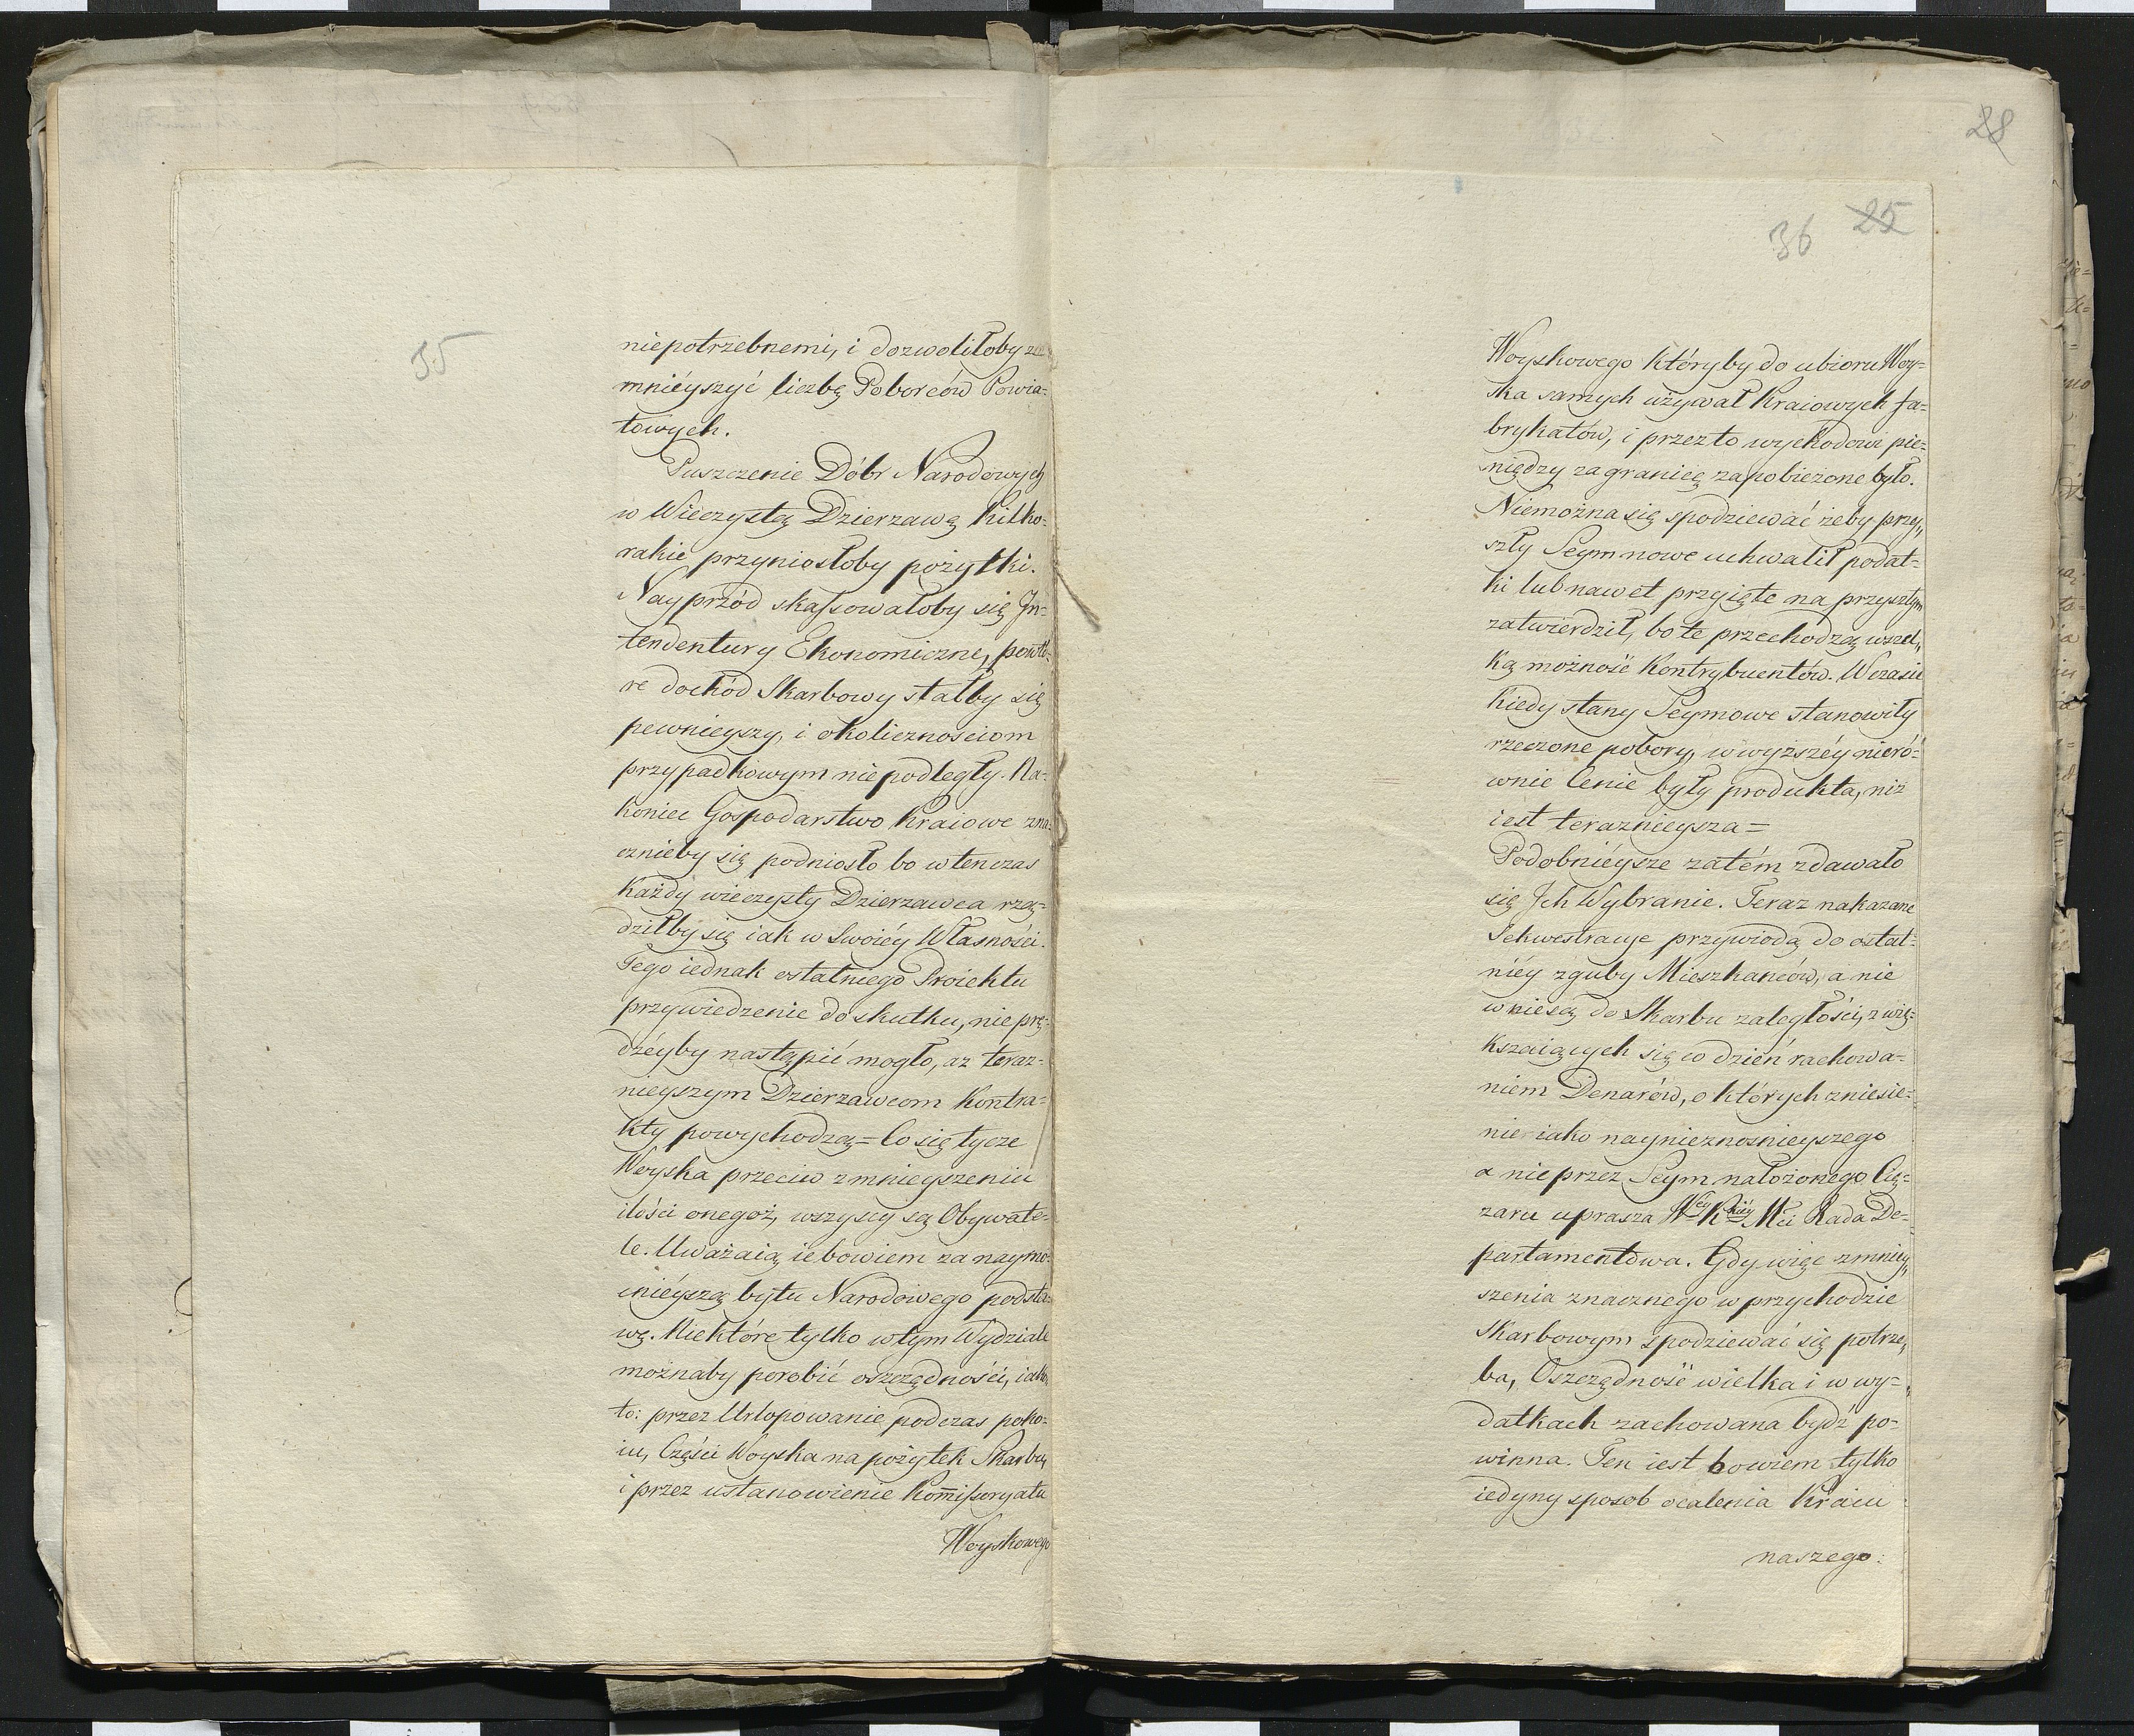 35
niepotrzebnemi, i dozwoliłoby
mniéyszyć liczbę Poborców Powia=
towych.
Puszczenie Dóbr Narodowych
w Wieczystą Dzierzawę kilko=
rakie przyniosłoby pożytki.
Nayprzód skassowałoby się In=
tendentury Ekonomiczne, powtó=
re dochód Skarbowy stałby się
pewnieyszy, i okolicznościom
przypadkowym niepodległy. Na=
koniec Gospodarstwo Kraiowe zna=
cznieby się podniosło bo wtenczas
każdy wieczysty Dzierzawca rzą=
dziłby się iak w Swoiéy Własności.
Tego iednak ostatniego Proiektu
przywiedzenie do skutku, nie prę=
dzéyby nastąpić mogło, az teraz=
nieyszym Dzierzawcom Kontra=
kty powychodzą = Co się tycze
Woyska przeciw zmnieyszeniu
ilości onegoż, wszyscy są Obywate=
le. Uważaią ie bowiem za naymo=
cniéyszą bytu Narodowego podsta=
wę. Niektóre tylko w tym Wydziale
możnaby porobić oszczędności, iako
to: przez Urlopowanie podczas poko=
iu, Części Woyska na pożytek Skarbu,
i przez ustanowienie Kom̄issoryatu
Woyskowego
28
36 25
Woyskowego któryby do ubioru Woy=
ska samych używał Kraiowych fa=
brykatów, i przezto wychodowi pie=
niędzy za granicę zapobieżone było.
Niemożna się spodziewać żeby przy„
szły Seym nowe uchwalił podat=
ki lub nawet przyięte na przyszłym
zatwierdził, bo te przechodzą wszel„
ką możność Kontrybuentów. W czasie
kiedy stany Seymowe stanowiły
rzeczone pobory, w wyższéy nieró=
wnie Cenie były produkta, niż
iest teraznieysza =
Podobniéysze zatém zdawało
się Ich Wybranie. Teraz nakazane
Sekwestracye przywiodą do ostat=
niéy zguby Mieszkańców, a nie
wniesą do Skarbu zaległości, zwię=
kszaiących się co dzień rachowa=
niem Denarów, o których zniesie=
nie iako naynieznosnieyszego
a nie przez Seym nałożonego Cię=
zaru uprasza Wéy Kkiéy Mci Rada De=
partamentowa. Gdy więc zmniey„
szenia znacznego w przychodzie
Skarbowym spodziewać się potrze„
ba, Oszczędność wielka i w wy=
datkach zachowana bydź po=
winna. Ten iest bowiem tylko
iedyny sposob ocalenia Kraiu
naszego: